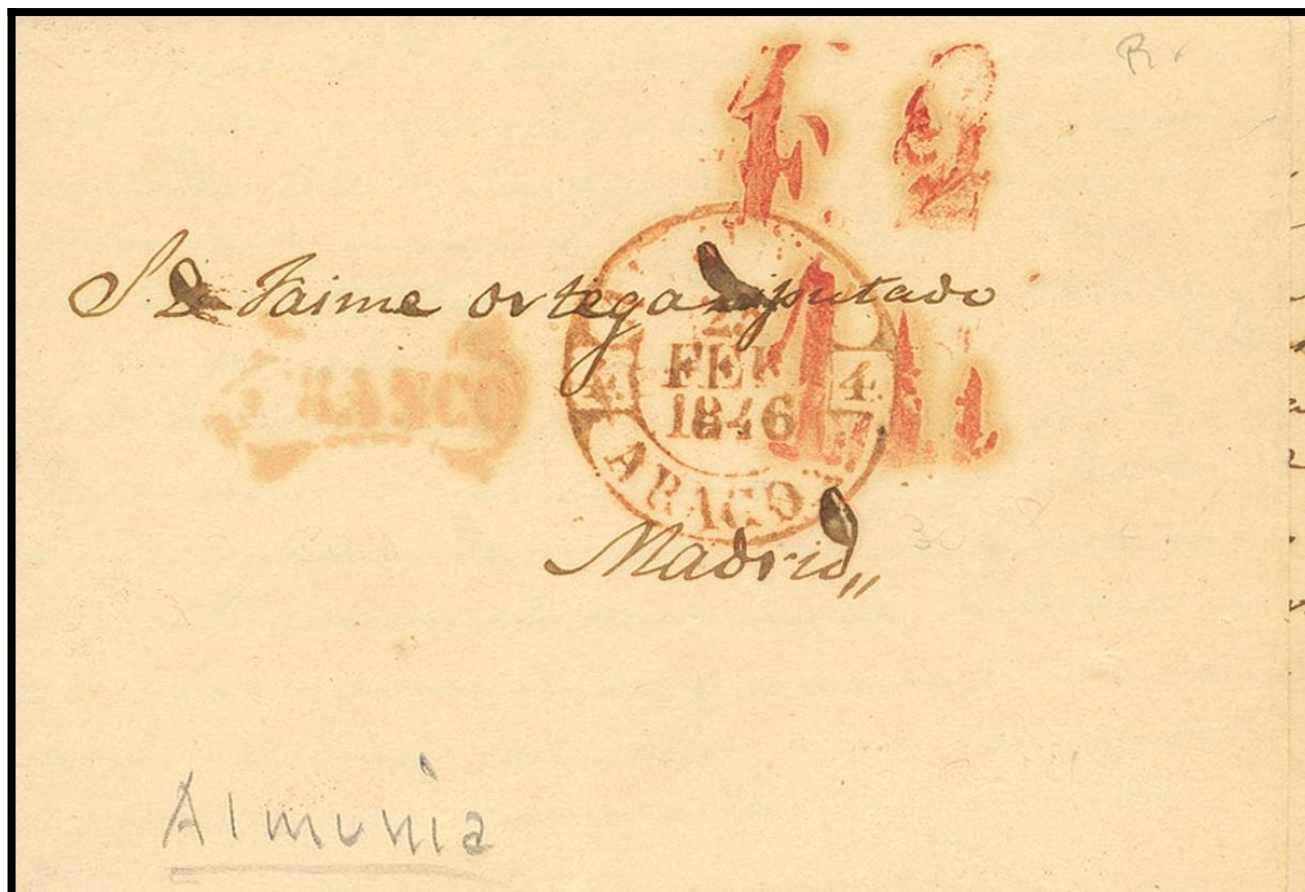 R
S. D. Jaime ortega diputado
FRANCO
FEB
1846
4
ARAGON
Madrid,,
Almunia